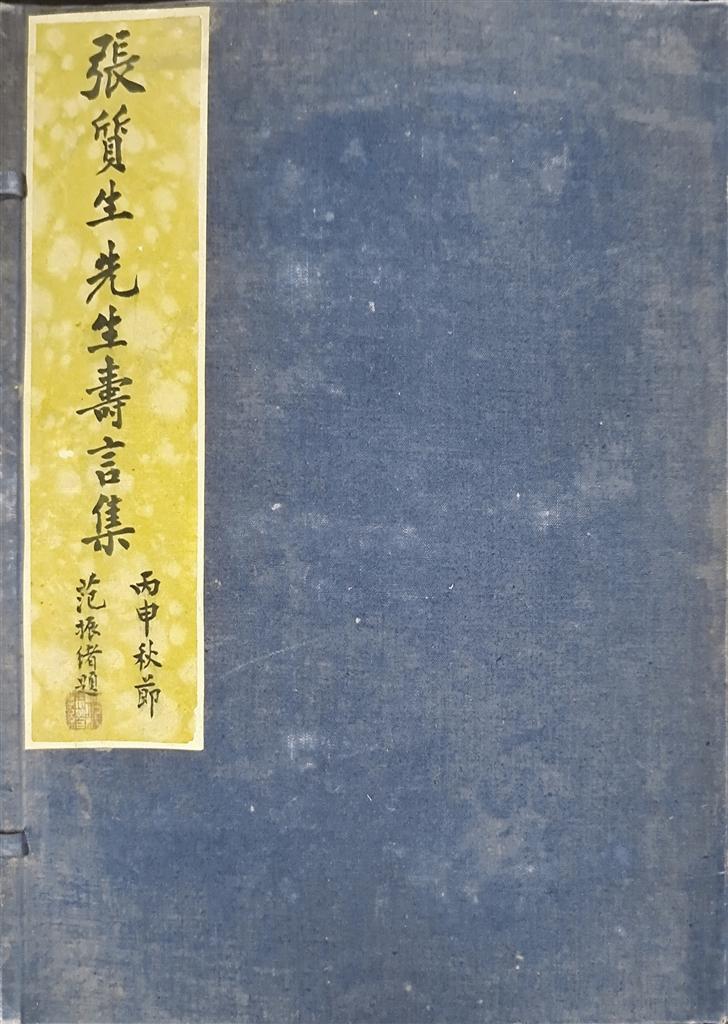 張質生先生壽言集
丙申秋節
范振緒題